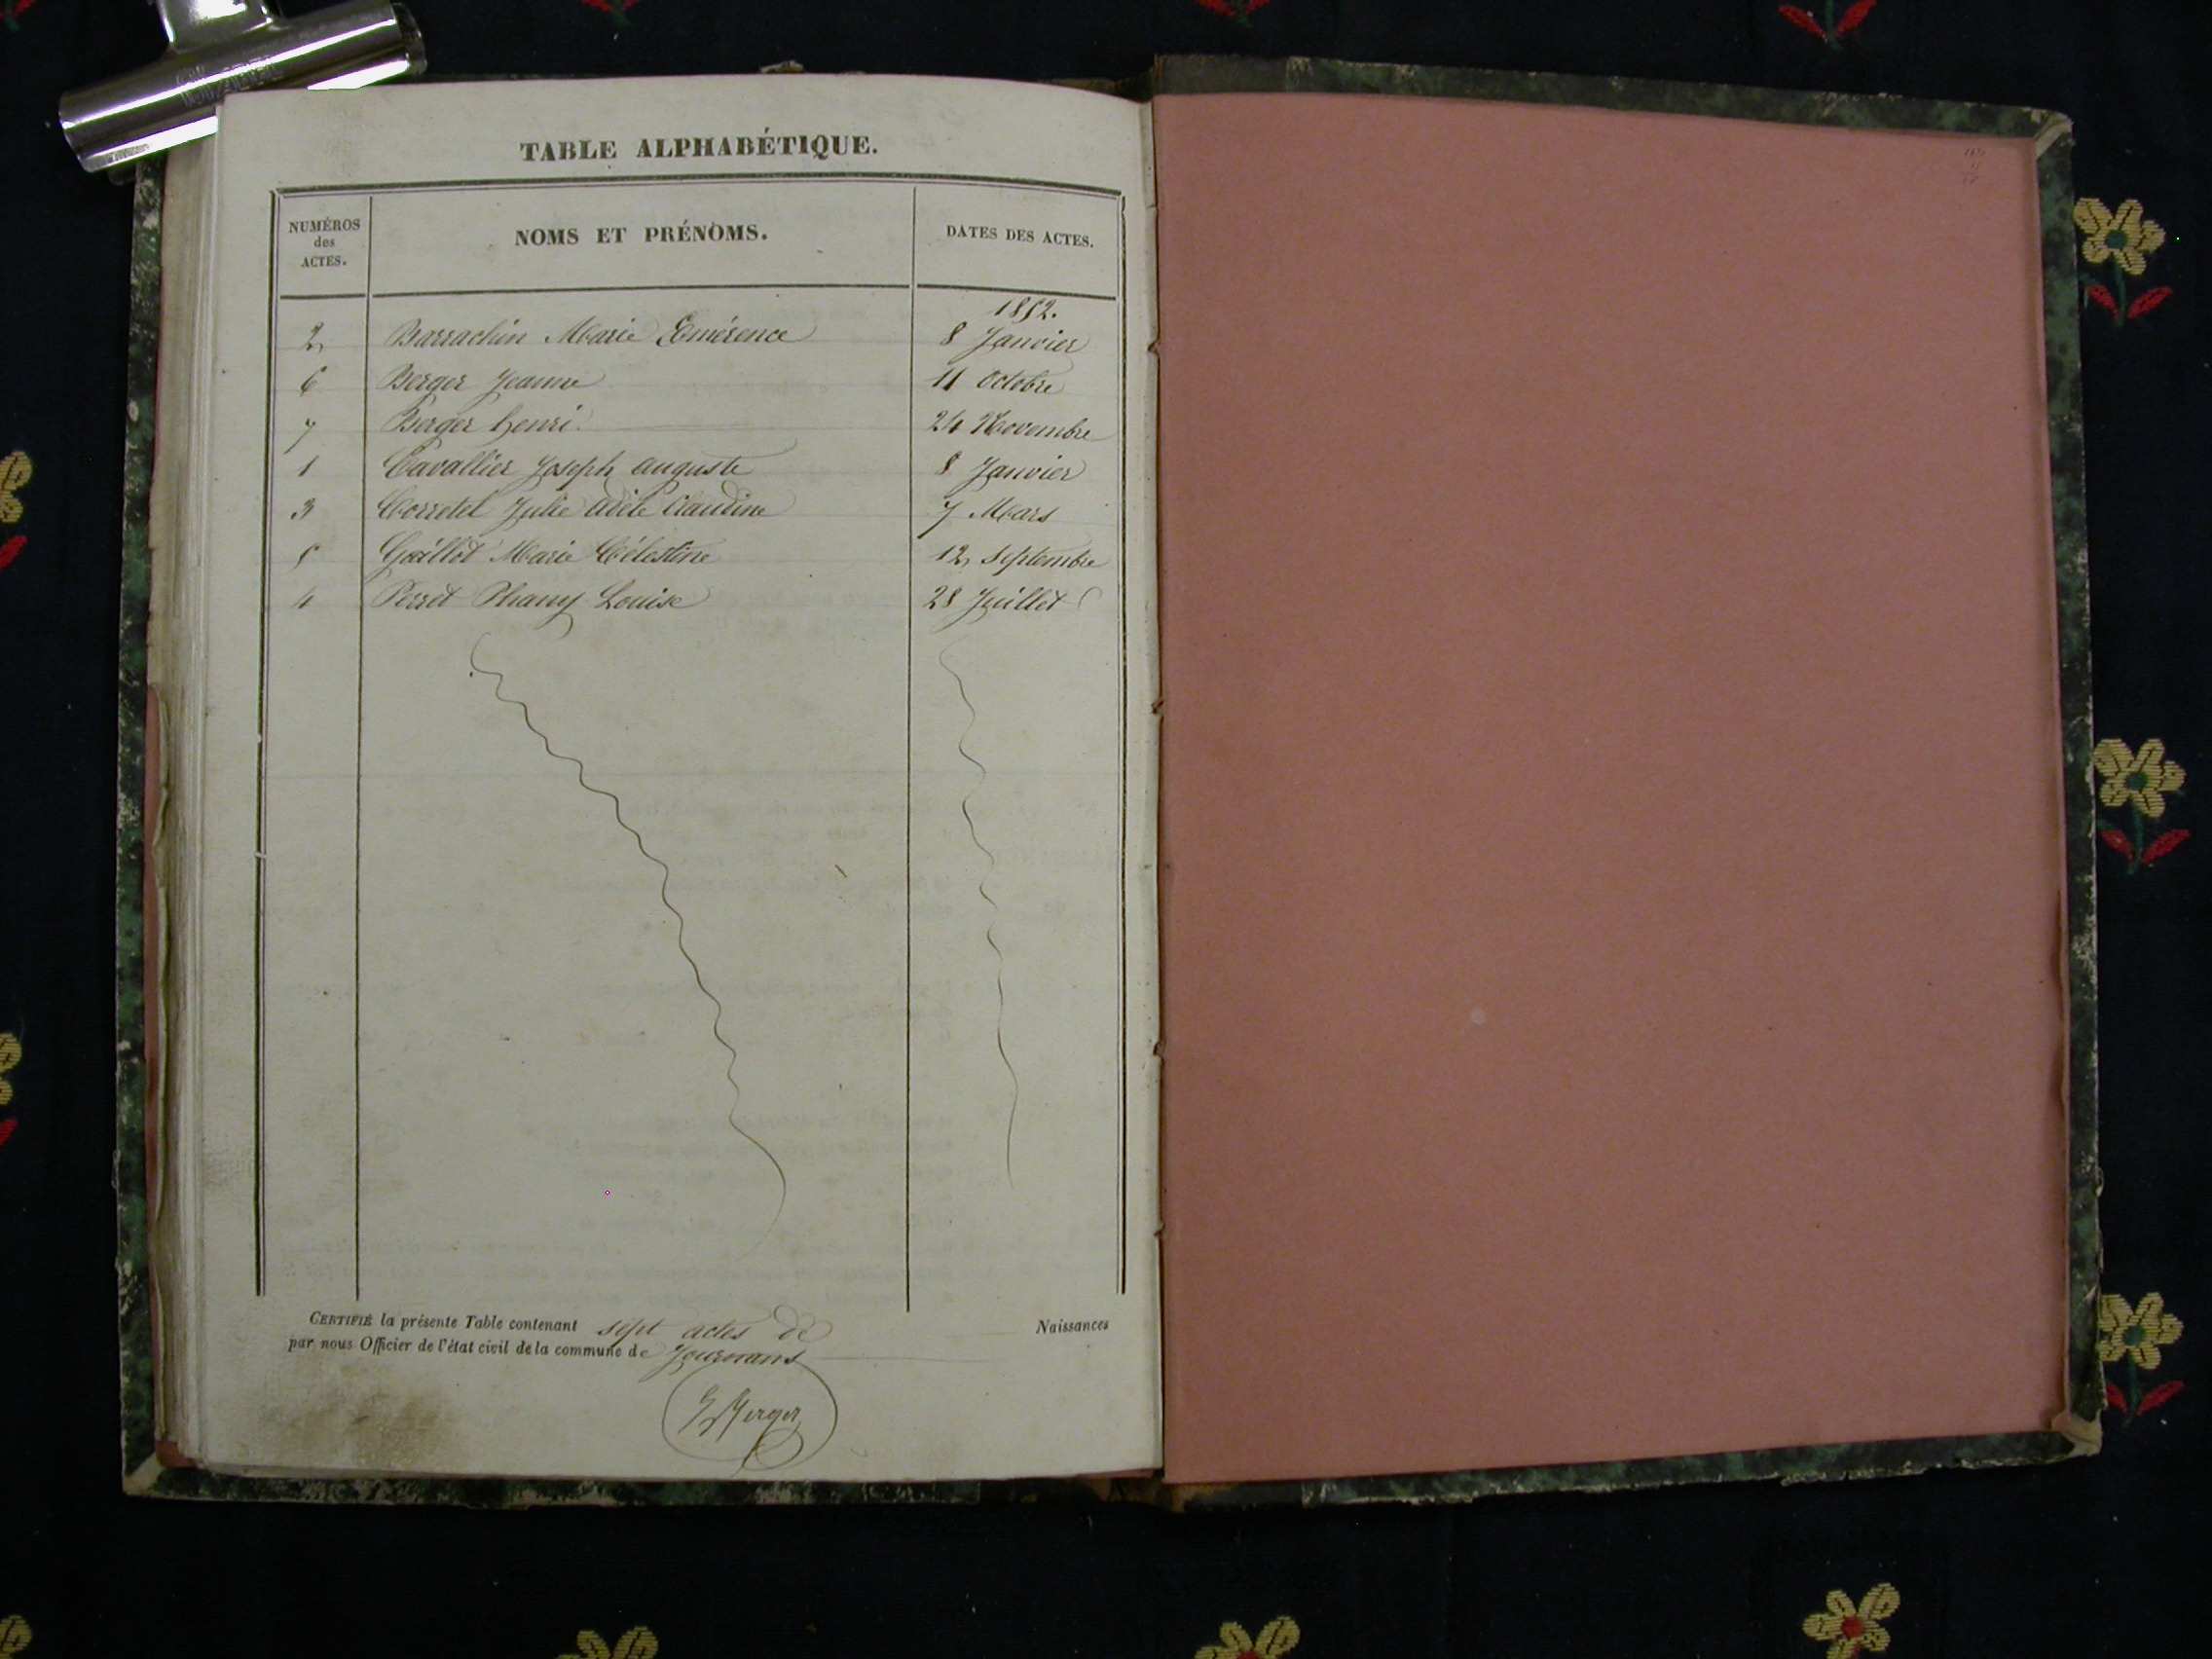 TABLE ALPHABÉTIQUE.
NUMÉROS des ACTES. NOMS ET PRÉNOMS. DATES DES ACTES.
1852.
2 Barrachin Marie Emérence 8 Janvier
6 Berger Jeanne 11 Octobre
7 Berger henri 24 Novembre
1 Cavallier Joseph auguste 8 Janvier
3 Corretel Julie adèle Claudine 7 Mars
5 Guillot Marie Célestine 12 Septembre
4 Perret Phany Louise 28 Juillet
CERTIFIÉ la présente Table contenant sept actes de Naissances
par nous Officier de l'état civil de la commune de Journans
Berger